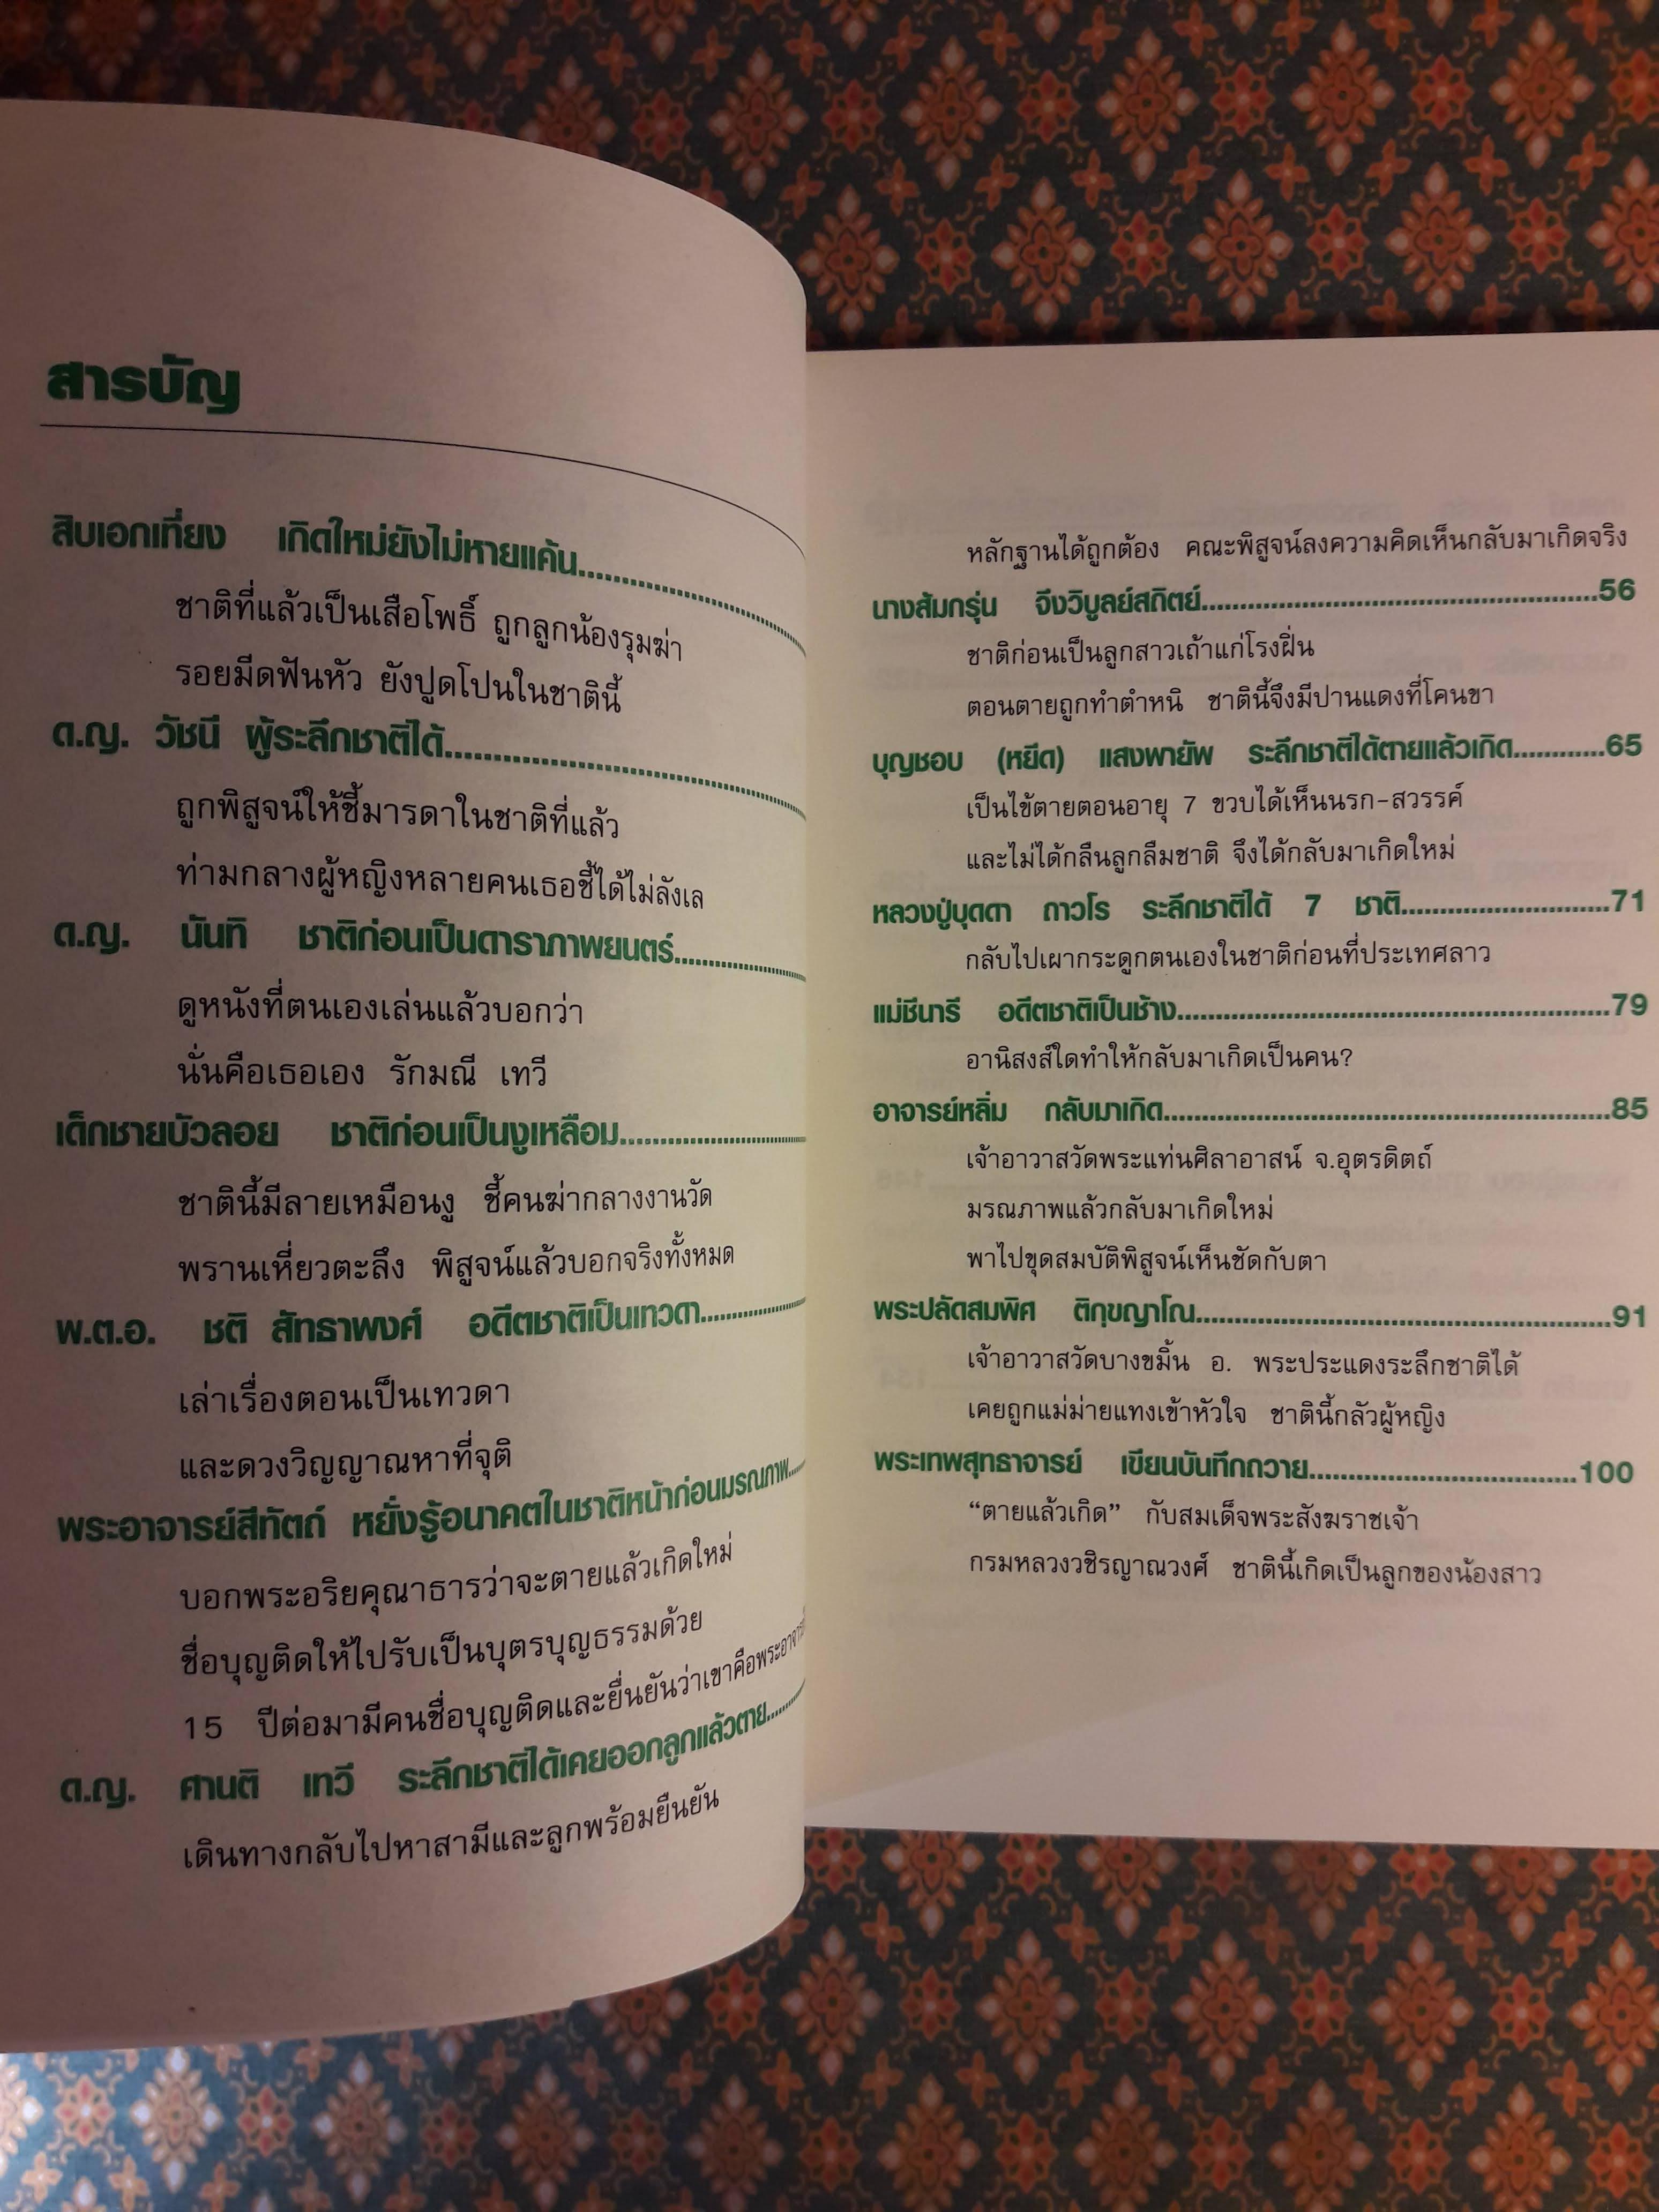 สารบัญ
สิบเอกเที่ยง เกิดใหม่ยังไม่หายแค้น
ชาติที่แล้วเป็นเสือโพธิ์ ถูกลูกน้องรุมฆ่า
รอยมีดฟันหัว ยังปูดโปนในชาตินี้
ด.ญ. วัชนี ผู้ระลึกชาติได้
ถูกพิสูจน์ให้ชี้มารดาในชาติที่แล้ว
ท่ามกลางผู้หญิงหลายคนเธอชี้ได้ไม่ลังเล
ด.ญ. นันทิ ชาติก่อนเป็นดาราภาพยนตร์
ดูหนังที่ตนเองเล่นแล้วบอกว่า
นั่นคือเธอเอง รักมณี เทวี
เด็กชายบัวลอย ชาติก่อนเป็นงูเหลือม
ชาตินี้มีลายเหมือนงู ชี้คนฆ่ากลางงานวัด
พรานเหี่ยวตะลึง พิสูจน์แล้วบอกจริงทั้งหมด
พ.ต.อ. ชติ สัทธาพงศ์ อดีตชาติเป็นเทวดา
เล่าเรื่องตอนเป็นเทวดา
และดวงวิญญาณหาที่จุติ
พระอาจารย์สีทัตถ์ หยั่งรู้อนาคตในชาติหน้าก่อนมรณภาพ
บอกพระอริยคุณาธารว่าจะตายแล้วเกิดใหม่
ชื่อบุญติดให้ไปรับเป็นบุตรบุญธรรมด้วย
15 ปีต่อมามีคนชื่อบุญติดและยื่นยันว่าเขาคือพระอาจารย์
ด.ญ. ศานติ เทวี ระลึกชาติได้เคยออกลูกแล้วตาย
เดินทางกลับไปหาสามีและลูกพร้อมยืนยัน
หลักฐานได้ถูกต้อง คณะพิสูจน์ลงความคิดเห็นกลับมาเกิดจริง
นางส้มกรุ่น จึงวิบูลย์สถิตย์ 56
ชาติก่อนเป็นลูกสาวเถ้าแก่โรงฝิ่น
ตอนตายถูกทำตำหนิ ชาตินี้จึงมีปานแดงที่โคนขา
บุญชอบ (หยีด) แสงพายัพ ระลึกชาติได้ตายแล้วเกิด 65
เป็นไข้ตายตอนอายุ 7 ขวบได้เห็นนรก-สวรรค์
และไม่ได้กลืนลูกลืมชาติ จึงได้กลับมาเกิดใหม่
หลวงปู่บุดดา ถาวโร ระลึกชาติได้ 7 ชาติ 71
กลับไปเผากระดูกตนเองในชาติก่อนที่ประเทศลาว
แม่ชีนารี อดีตชาติเป็นช้าง 79
อานิสงส์ใดทำให้กลับมาเกิดเป็นคน?
อาจารย์หลิ่ม กลับมาเกิด 85
เจ้าอาวาสวัดพระแท่นศิลาอาสน์ จ.อุตรดิตถ์
มรณภาพแล้วกลับมาเกิดใหม่
พาไปขุดสมบัติพิสูจน์เห็นชัดกับตา
พระปลัดสมพิศ ติกฺขญาโณ 91
เจ้าอาวาสวัดบางขมิ้น อ. พระประแดงระลึกชาติได้
เคยถูกแม่ม่ายแทงเข้าหัวใจ ชาตินี้กลัวผู้หญิง
พระเทพสุทธาจารย์ เขียนบันทึกถวาย 100
“ตายแล้วเกิด” กับสมเด็จพระสังฆราชเจ้า
กรมหลวงวชิรญาณวงศ์ ชาตินี้เกิดเป็นลูกของน้องสาว